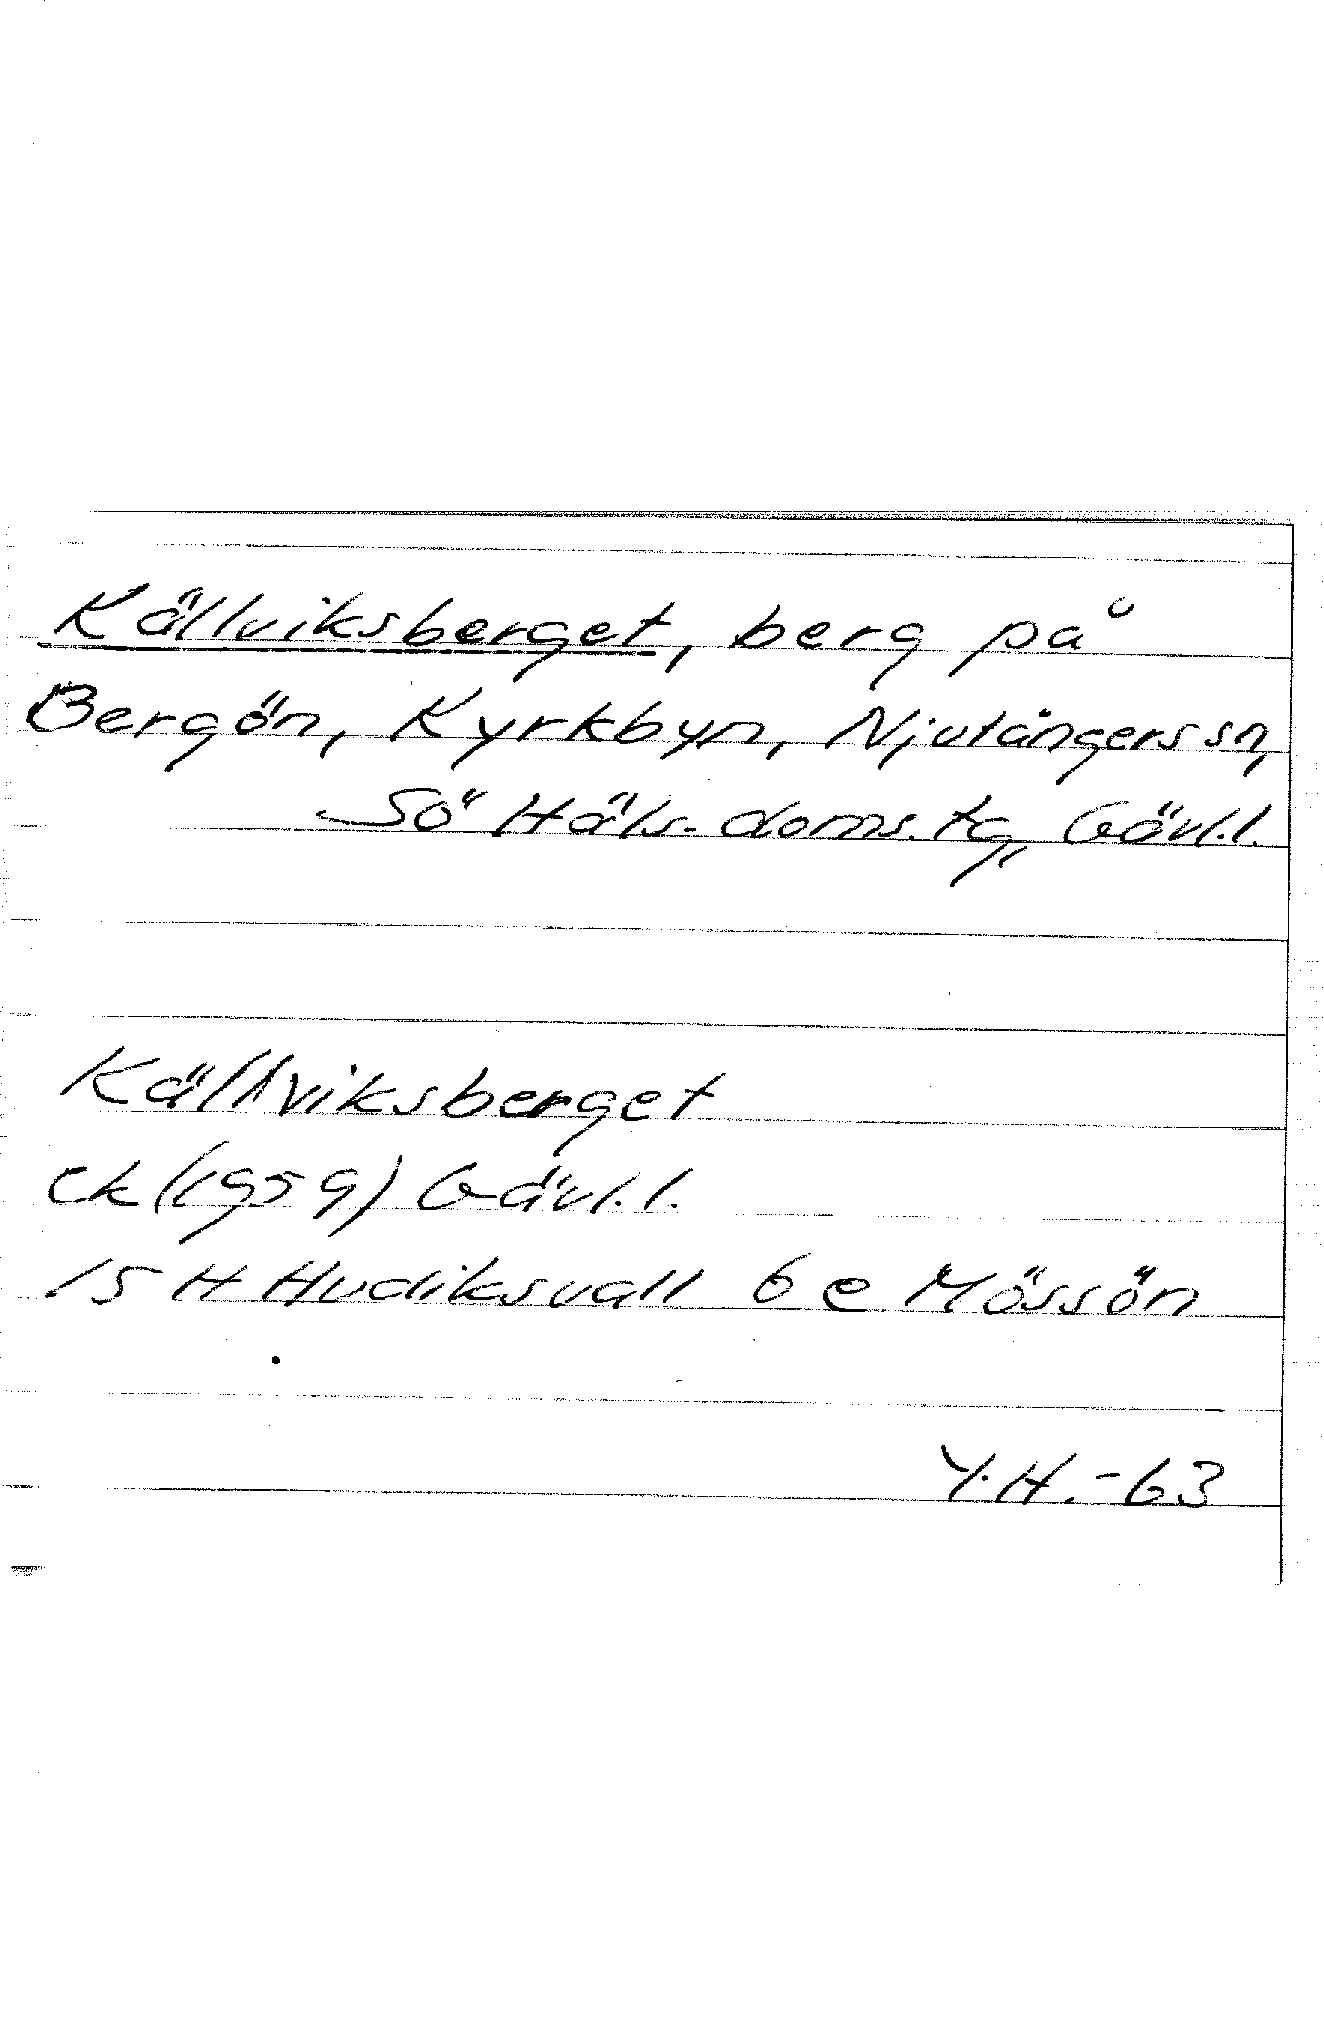 Källviksberget, berg på
Bergön, Kyrkbyn, Njutångers sn,
Sö Häls. doms. tg, Gävl.l.
Källviksberget
Ek (1959) Gävl.l.
15 H Hudiksvall 6 e Mössön
Y.H.-63